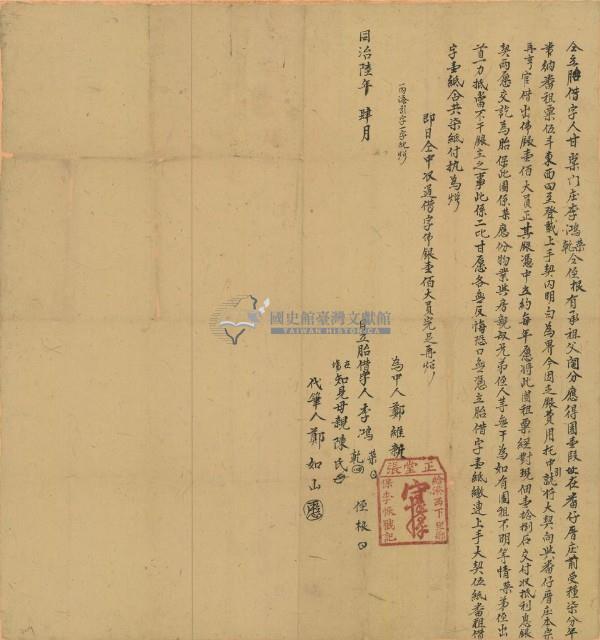 仝立胎借字人甘棠门庄李鴻榮乾仝侄根有承祖父鬮分應得園壹段址在番仔厝庄前受種柒分年
帶納番租粟伍斗東西四至登載上手契内明白為界今因乏銀費用托中引就將大契向與番仔厝庄本宗
再亨官借出佛銀壹佰大員正其銀憑中立約每年愿將此園租票經對現佃壹拾捌石交付収抵利息銀
契两愿交訖為胎保此園係榮應份物業與房親叔兄弟侄人等無干為如有園租不明等情榮弟侄出
首一力抵當不干銀主之事此係二比甘愿各無反悔恐口無憑立胎借字壹紙繳連上手大契伍紙番租借
字壹紙合共柒紙付执為炤
即日仝中収過借字佛銀壹佰大員完足再炤
一内添引字一字批炤
同治陸年 肆月
為中人鄭維新
日立胎借字人李鴻榮乾 侄根
在場知見母親陳氏
代筆人鄭如山
正堂張
國史館臺灣文獻館
TAIWAN HISTORICA